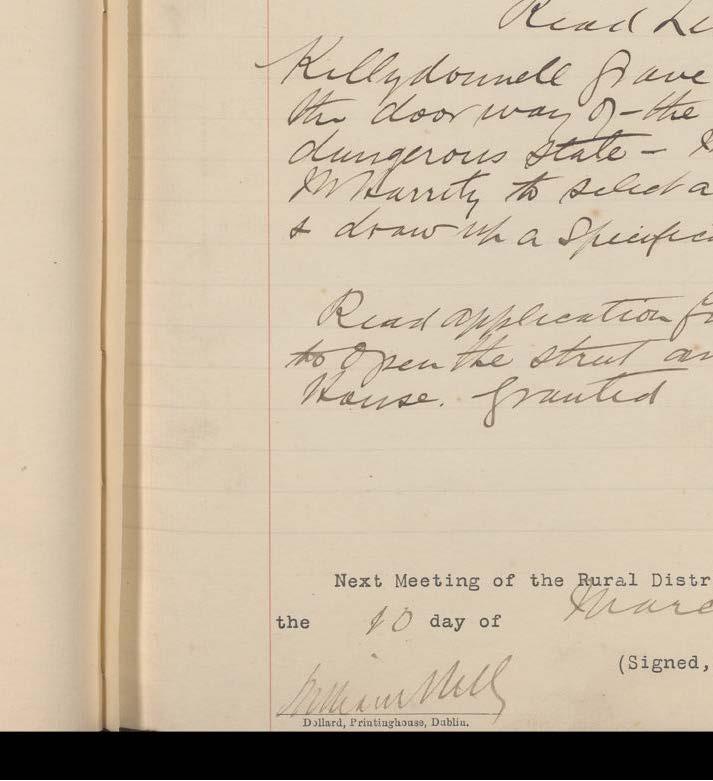 Read Le
Killydonnell Grave
the doorway of the
dangerous state -
McGarrity to select a
& draw up a Specific
Read application fr
to open the street an
House. Granted
Next Meeting of the Rural Distr
the 10 day of Marc
(Signed,
William
Dollard, Printinghouse, Dublin.